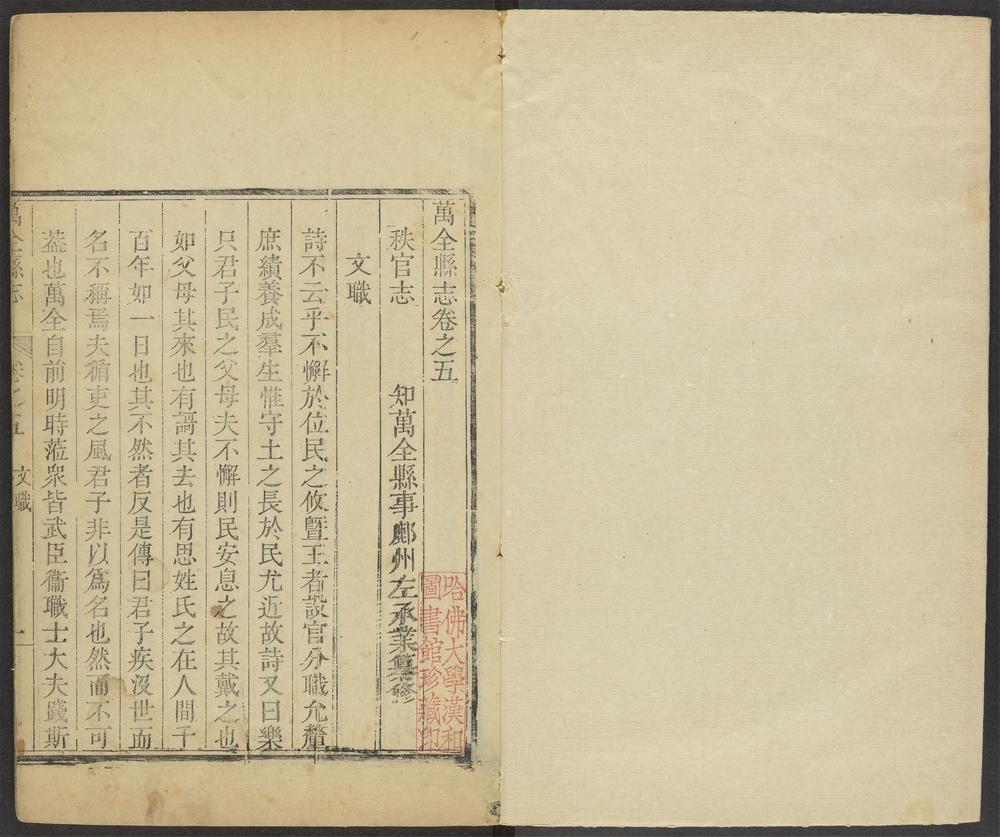 萬全縣志卷之五
秩官志　知萬全縣事鄜州左承業纂修
文職
詩不云乎不懈於位民之攸曁王者設官分職允釐
庶績養成羣生惟守土之長於民尤近故詩又曰樂
只君子民之父母夫不懈則民安息之故其戴之也
如父母其來也有謌其去也有思姓氏之在人間千
百年如一日也其不然者反是傳曰君子疾沒世而
名不稱焉夫循吏之風君子非以爲名也然而不可
葢也萬全自前明時蒞衆皆武臣衞職士大夫踐斯
萬全縣志　卷之五　文職　一
哈佛大學漢和
圖書館珍藏印